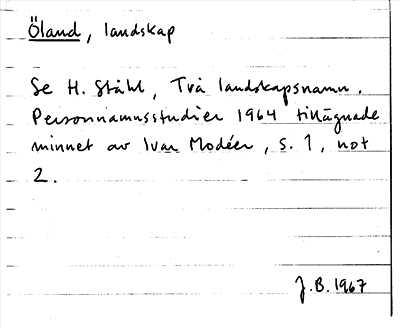 Öland, landskap
Se H. Ståhl, Två landskapsnamn.
Personnamnsstudier 1964 tillägnade
minnet av Ivar Modéer, s. 1, not
2.
J.B. 1967